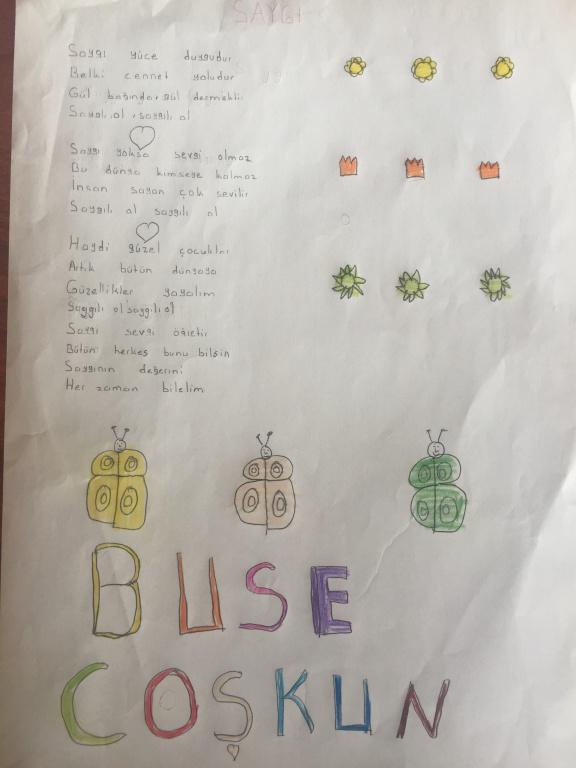 SAYGI
Saygı yüce duygudur
Belki cennet yoludur
Gül bağından gül dermektir
Saygılı ol, saygılı ol
Saygı yoksa sevgi olmaz
Bu dünya kimseye kalmaz
İnsan sayan çok sevilir
Saygılı ol saygılı ol
Haydi güzel çocuklar
Artık bütün dünyaya
Güzellikler yayalım
Saygılı ol saygılı ol
Saygı sevgi öğretir
Bütün herkes bunu bilsin
Saygının değerini
Her zaman bilelim
BUSE
COŞKUN